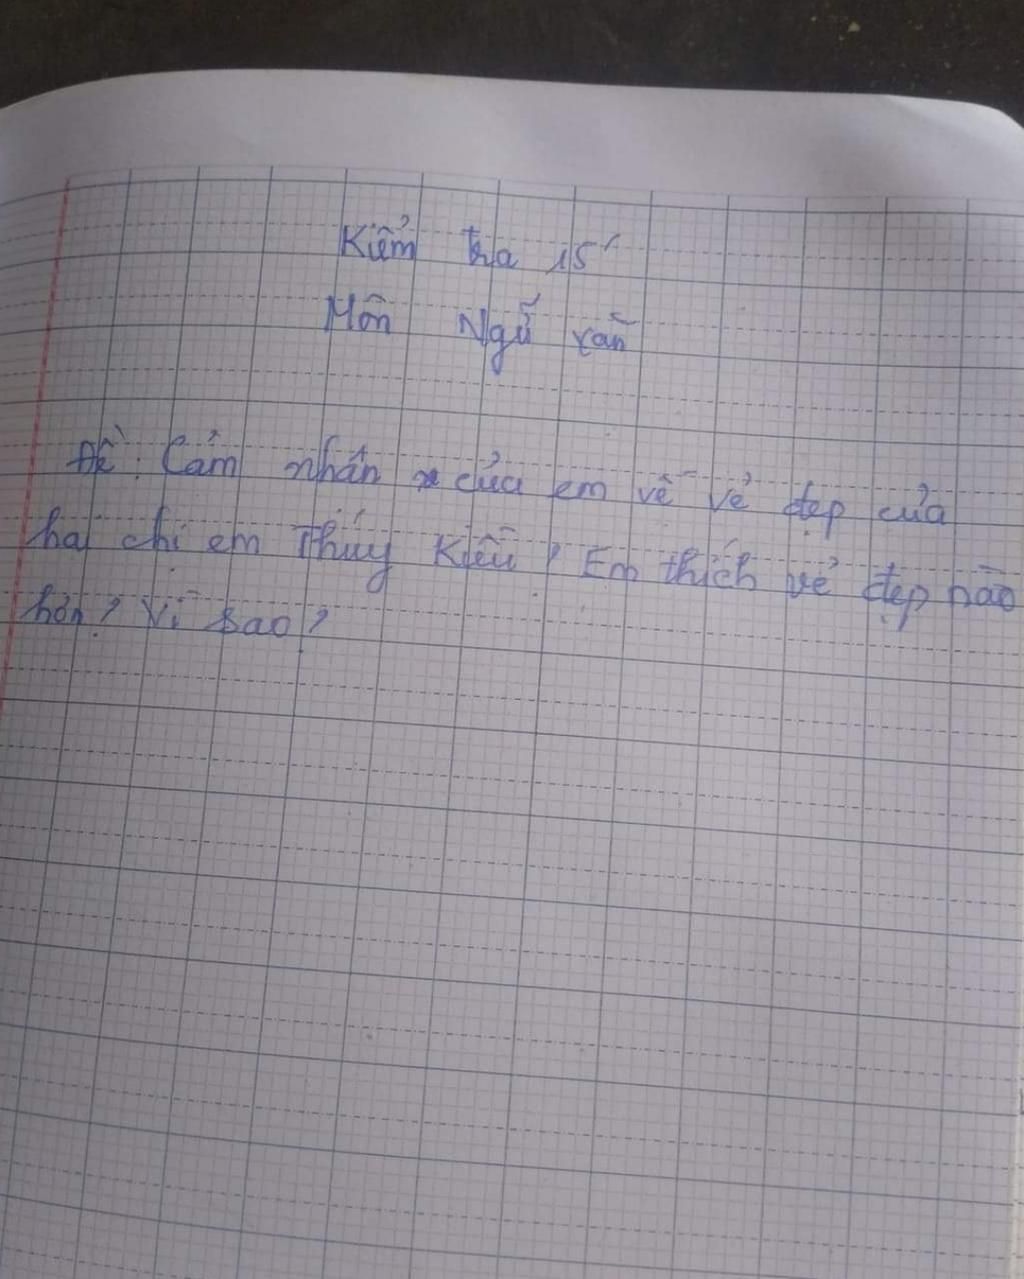 Kiểm tra 15'
Môn Ngữ văn
Đề: Cảm nhận của em về vẻ đẹp của
hai chị em Thúy Kiều? Em thích vẻ đẹp nào
hơn? Vì sao?